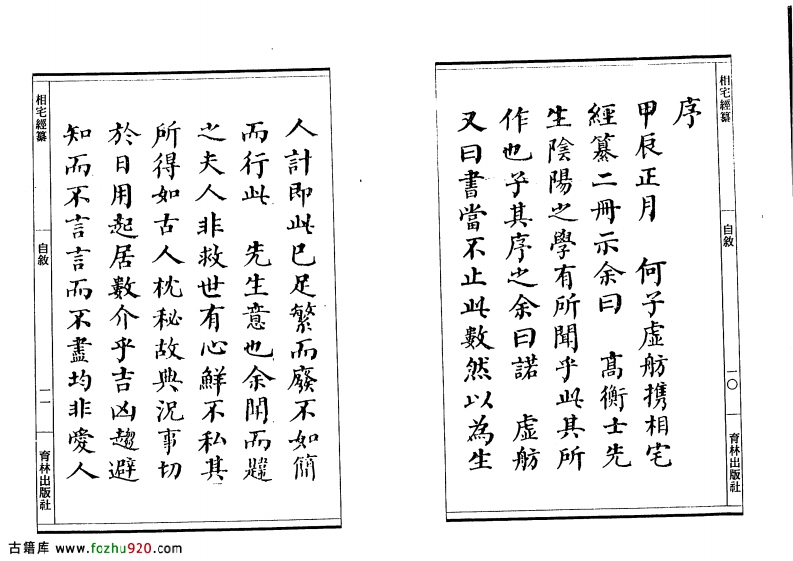 相宅經纂
自敘
一〇
育林出版社
序
甲辰正月　何子虛舫攜相宅
經纂二冊示余曰　高衡士先
生陰陽之學有所聞乎此其所
作也子其序之余曰諾　虛舫
又曰書當不止此數然以為生
人計即此已足繁而廢不如簡
而行此　先生意也余聞而韙
之夫人非救世有心鮮不私其
所得如古人枕秘故典況事切
於日用起居數介乎吉凶趨避
知而不言言而不盡均非愛人
相宅經纂
自敘
一一
育林出版社
古籍库 www.fozhu920.com